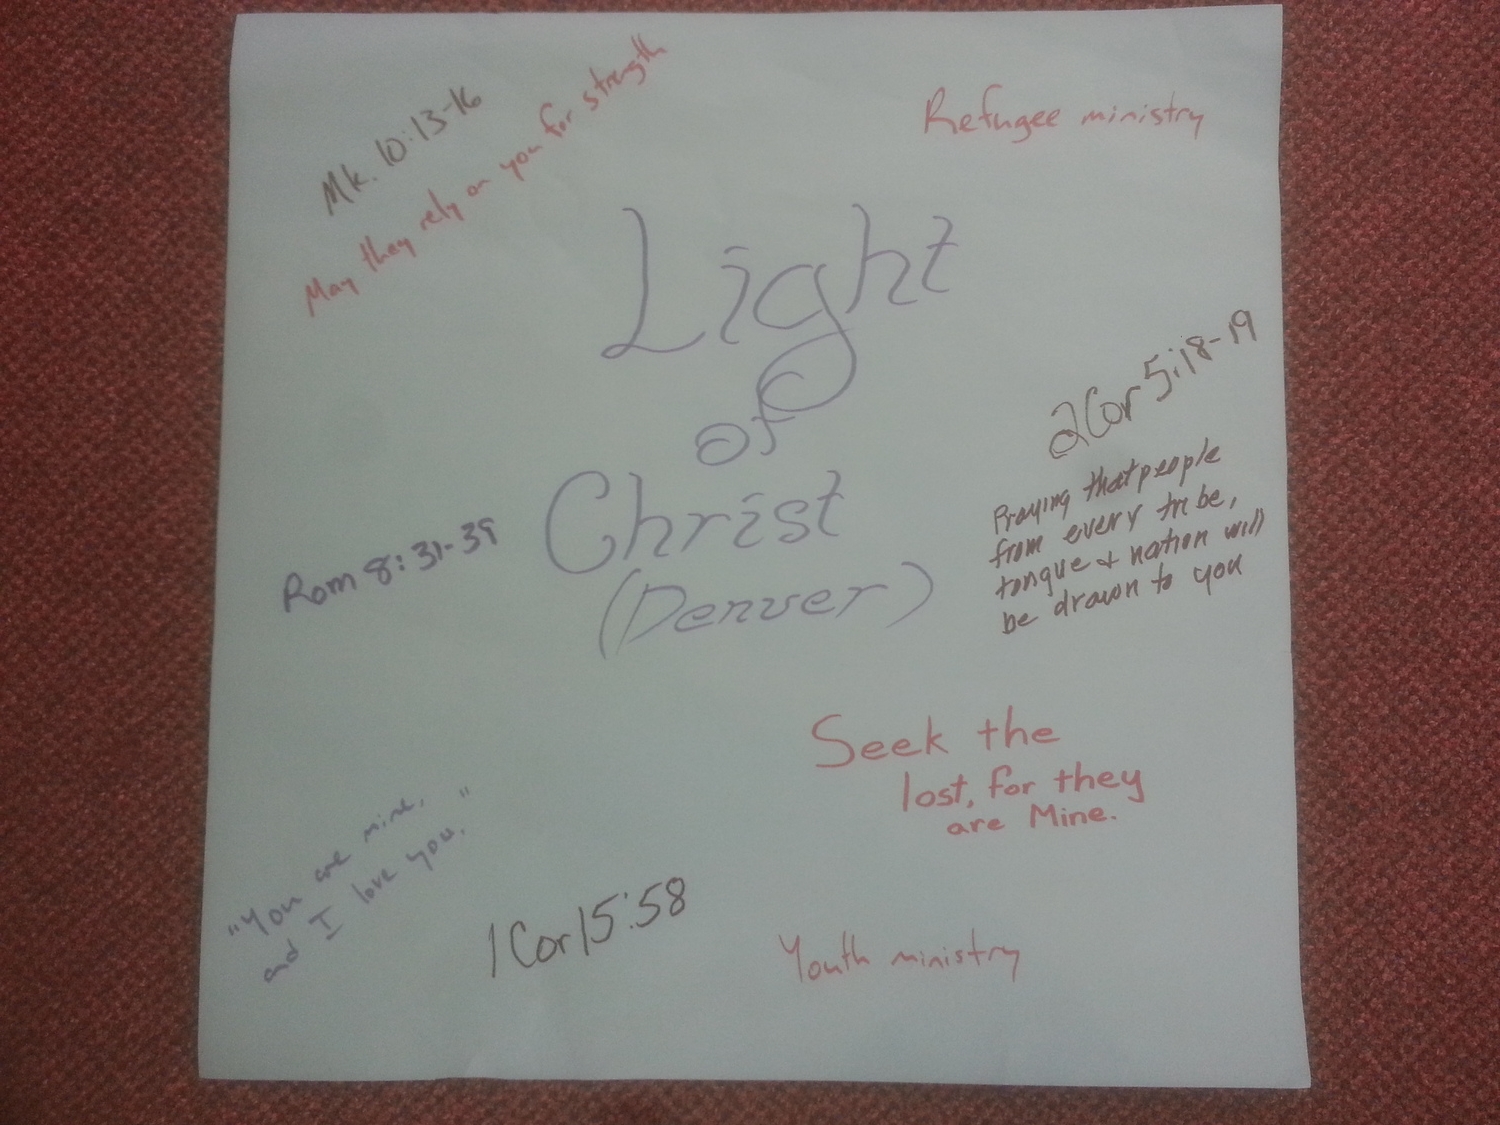 Mk. 10:13-16
May they rely on you for strength
Refugee ministry
Light
of
Christ
(Denver)
2Cor 5:18-19
Praying that people
from every tribe,
tongue + nation will
be drawn to you
Rom 8:31-39
Seek the
lost, for they
are Mine.
"You are mine,
and I love you."
1Cor 15:58
Youth ministry